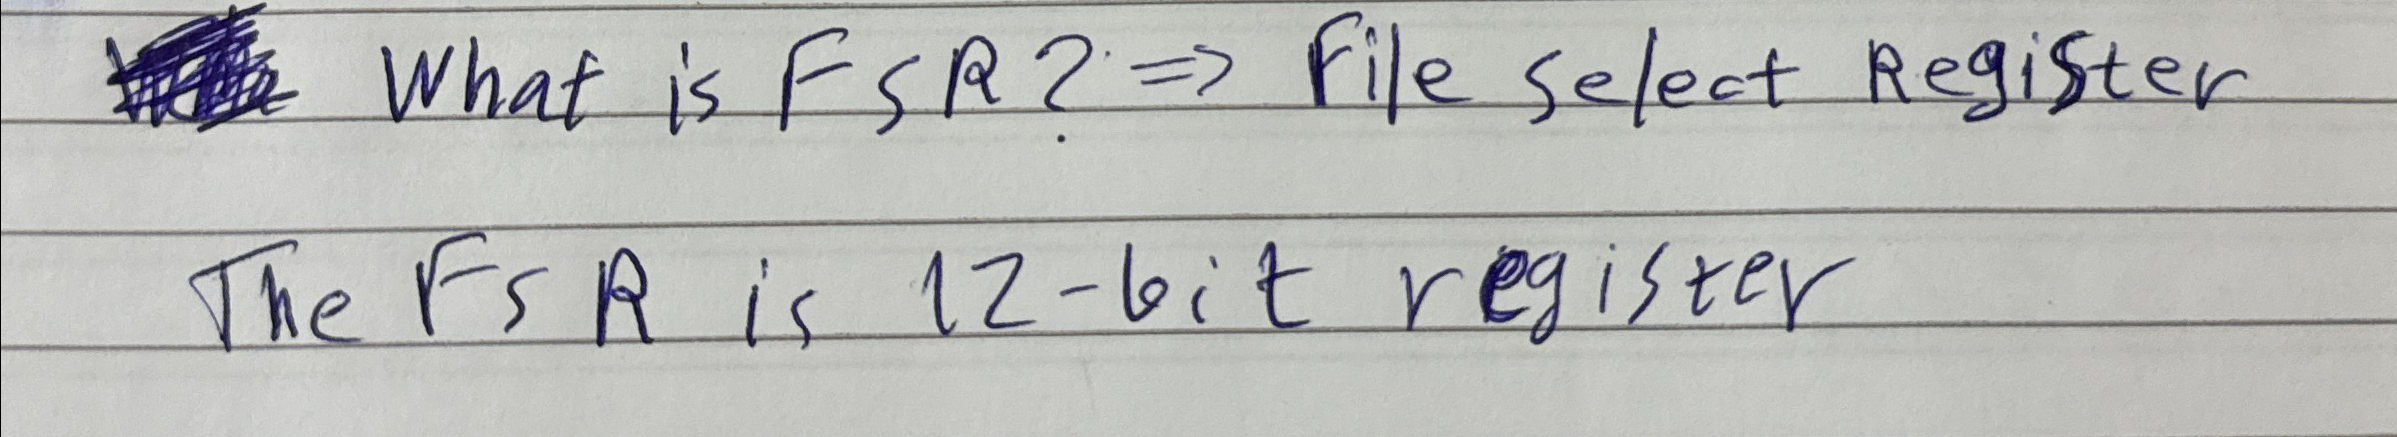 What is FSR? => File Select Register
The FSR is 12-bit register